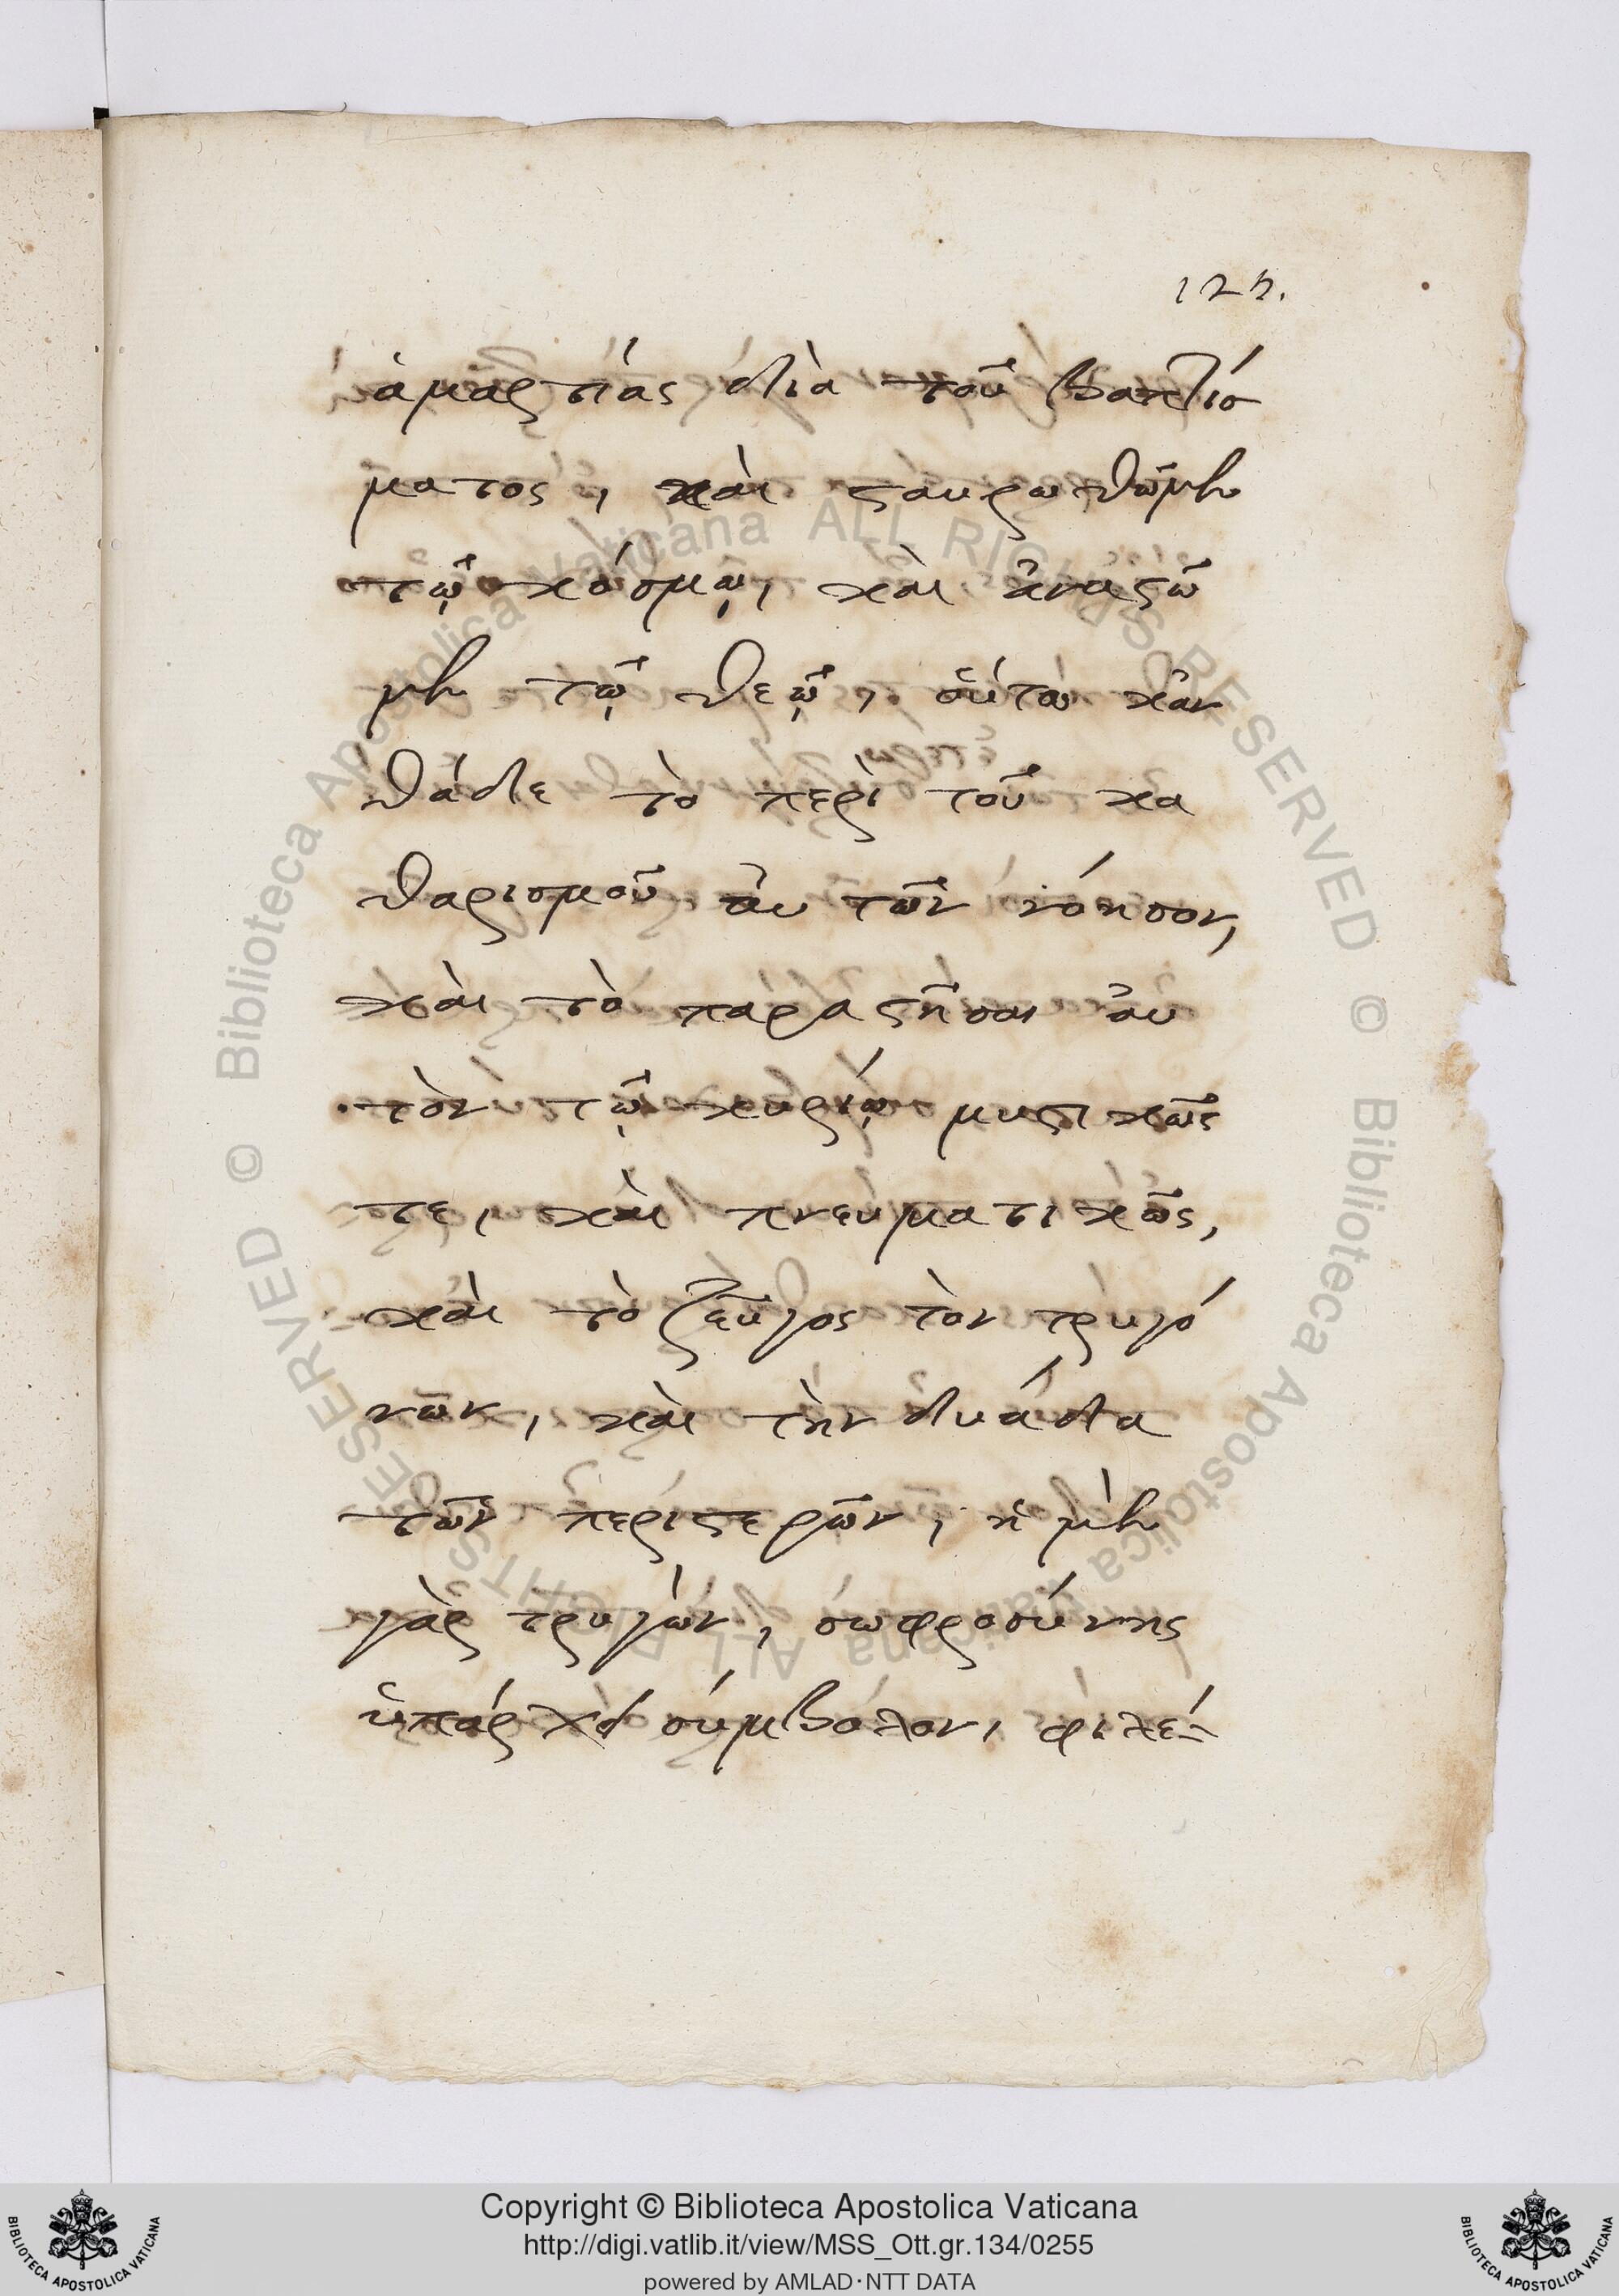 125.
ἁμαρτίας διὰ τοῦ βαπτίσ
ματος, καὶ σταυρωθῶμεν
τῷ κόσμῳ, καὶ ἀναστῶ
μεν τῷ θεῷ, οὕτω κἀν
θάδε τὸ περὶ τοῦ κα
θαρισμοῦ αὐτῶν νόησον,
καὶ τὸ παραστῆσαι αὐ
τὸν τῷ κυρίῳ μυστικῶς
τε, καὶ πνευματικῶς,
καὶ τὸ ζεῦγος τὸν τρυγό
νων, καὶ τὴν δυάδα
τῶν περιστερῶν, ἡ μὲν
γὰρ τρυγὼν, σωφροσύνης
ὑπάρχει σύμβολον, φιλέ-
© Biblioteca Apostolica Vaticana ALL RIGHTS RESERVED
© Biblioteca Apostolica Vaticana ALL RIGHTS RESERVED
BIBLIOTECA APOSTOLICA VATICANA
Copyright © Biblioteca Apostolica Vaticana
http://digi.vatlib.it/view/MSS_Ott.gr.134/0255
powered by AMLAD·NTT DATA
BIBLIOTECA APOSTOLICA VATICANA